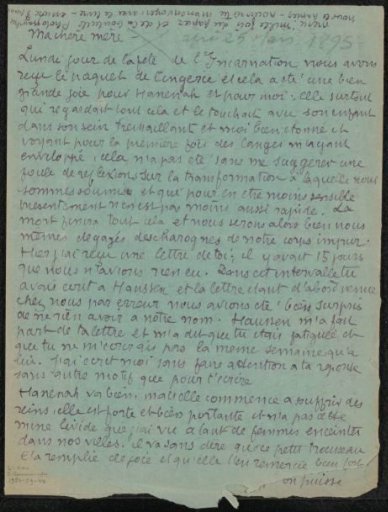 Ma chère mère
Lundi jour de la fête de l'Incarnation nous avons
reçu le paquet de lingerie et cela a été une bien
grande joie pour Hanenah et pour moi. Elle surtout
qui regardait tout cela et le touchait avec son enfant
dans son sein tressaillant et moi bien étonné et
voyant pour la première fois des langes m'ayant
enveloppé, cela n'a pas été sans me suggérer une
foule de réflexions sur la transformation à laquelle nous
sommes soumis et qui pour en être moins sensible
présentement n'en est pas moins aussi rapide. La
mort finira tout cela et nous serons alors bien nous
mêmes dégagés des charognes de notre corps impur.
Hier j'ai reçu une lettre de toi; il y avait 15 jours
que nous n'avions rien eu. Dans cet intervalle tu
avais écrit à Hanssen et la lettre étant d'abord venue
chez nous par erreur nous avions été bien surpris
de ne rien avoir à notre nom. Hanssen m'a fait
part de ta lettre et m'a dit que tu étais fatiguée et
que tu ne m'écrivais pas la même semaine qu'à
lui. J'ai écrit moi sans faire attention à ta réponse
sans autre motif que pour t'écrire
Hanenah va bien, mais elle commence à souffrir des
reins; elle est forte et bien portante et n'a pas cette
mine livide que j'ai vue à tant de femmes enceintes
dans nos villes. Il va sans dire que ce petit trousseau
l'a remplie de joie et qu'elle t'en remercie bien fort
on puisse